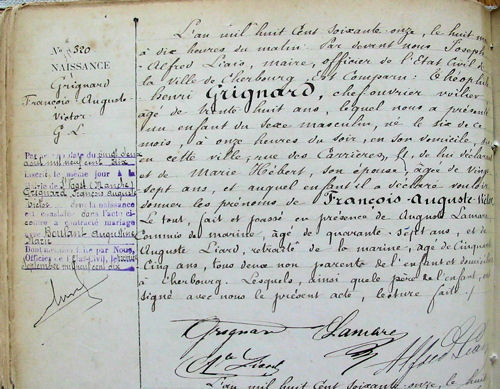 N° 520
NAISSANCE
Grignard
François Auguste
Victor
G L
Par acte en date du vingt deux
août mil neuf cent dix
inscrit le même jour à la
Mairie de (Manche)
Grignard François Auguste
Victor dont la naissance
est constatée dans l'acte ci-
contre a contracté mariage
avec Boulant Augustine
Marie
Dont mention faite par Nous,
Officier de l'État-Civil, le
septembre mil neuf cent dix
L'an mil huit Cent soixante-onze, le huit mai
à dix heures du matin. Par devant nous Joseph-
Alfred Liais, maire, officier de l'État Civil de
la Ville de Cherbourg, Est Comparu: Théophile
henri Grignard, chef ouvrier voilier,
âgé de trente huit ans, lequel nous a présenté
un enfant du sexe masculin, né le six de ce
mois, à onze heures du soir, en son domicile, sis
en cette ville, rue des Carrières, de lui déclarant
et de Marie Hébert son épouse, âgée de vingt
sept ans, et auquel enfant il a déclaré vouloir
donner les prénoms de François-Auguste-Victor.
Le tout, fait et passé en présence de Auguste Lamare
Commis de marine, âgé de quarante-sept ans, et de
Auguste Liard, retraité de la marine, âgé de Cinquante
Cinq ans, tous deux non parents de l'enfant et domiciliés
à Cherbourg. Lesquels, ainsi que le père de l'enfant, ont
signé avec nous le présent acte, lecture faite.
Grignard Lamare
Liard Alfred Liais
L'an mil huit Cent soixante onze, le huit